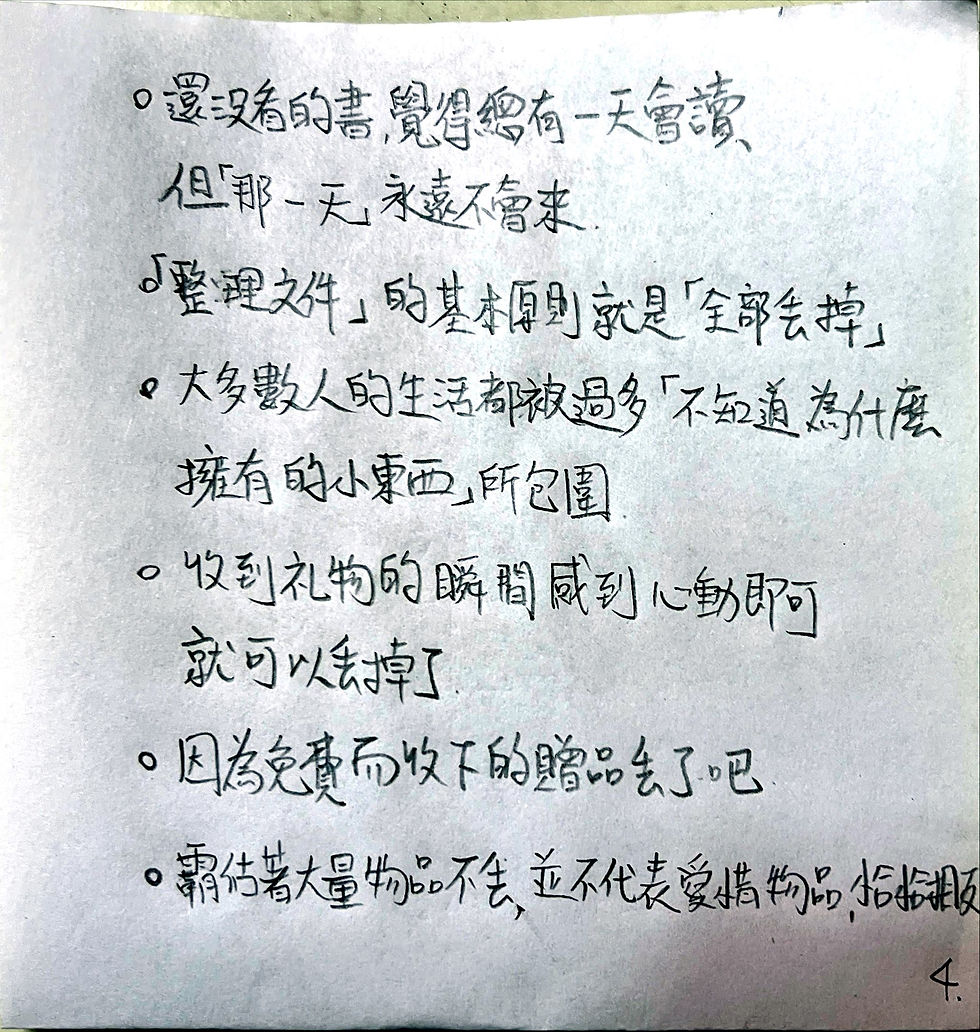 。還没看的書,覺得總有一天會讀、
但「那一天」永遠不會來.
。「整理文件」的基本原則就是「全部丢掉」
。大多數人的生活都被過多「不知道為什麼
擁有的小東西」所包圍.
。收到礼物的瞬間感到心動即可
就可以丢掉了.
。因為免費而收下的贈品丢了吧.
。霸佔著大量物品不丢,並不代表愛惜物品,恰恰相反
4.